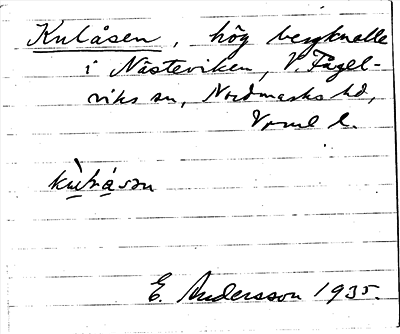 Kulåsen, hög bergknalle
i Nästeviken, V. Fågel-
viks sn, Nordmarks hd,
Vrml l.
E. Andersson 1935.